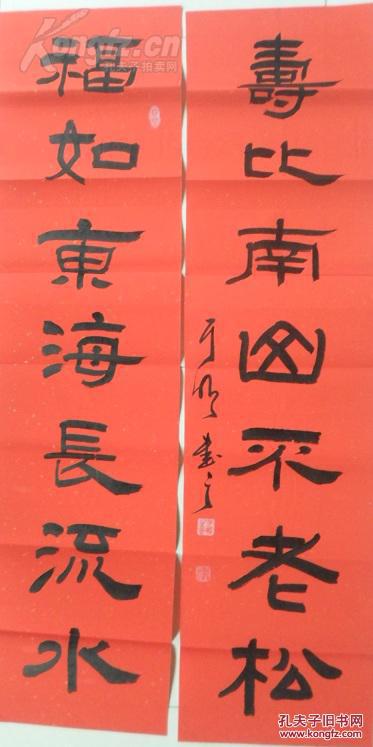 壽比南山不老松
福如東海長流水
书之
Kongfz.com
孔夫子拍卖网
孔夫子旧书网
www.kongfz.com